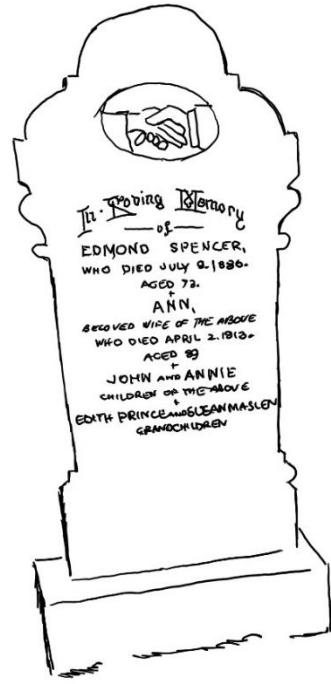 In Loving Memory
of
EDMOND SPENCER,
WHO DIED JULY 2.1886.
AGED 72.
+
ANN,
BELOVED WIFE OF THE ABOVE
WHO DIED APRIL 2.1913.
AGED 89
+
JOHN AND ANNIE
CHILDREN OF THE ABOVE
+
EDITH PRINCE AND SUSAN MASLEN
GRANDCHILDREN